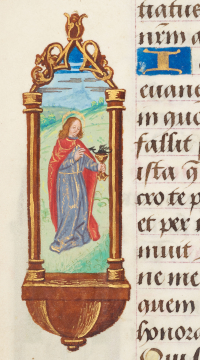 tiatus
nrm a
I
euane
m quo
fallit
ista q
cro te p
et per
muit
ne me
quem
honora